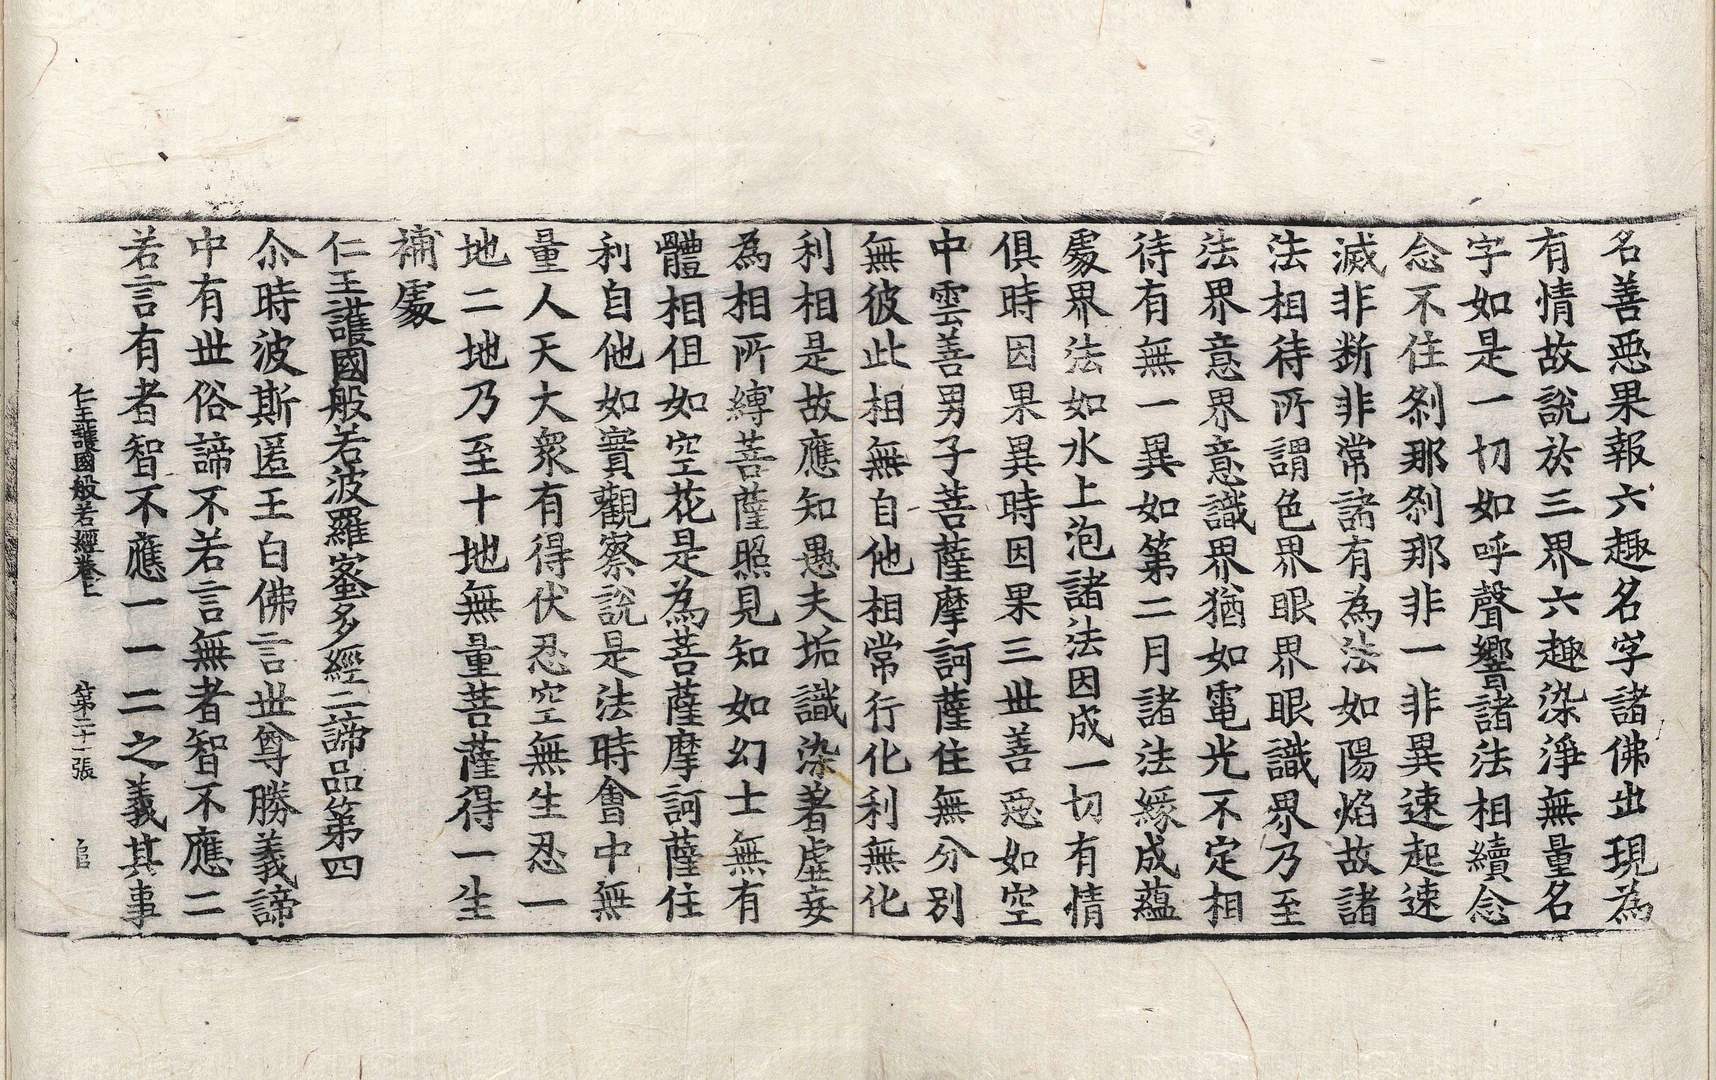 名善惡果報六趣名字諸佛出現為
有情故說於三界六趣染淨無量名
字如是一切如呼聲響諸法相續念
念不住刹那刹那非一非異速起速
滅非斷非常諸有為法如陽焰故諸
法相待所謂色界眼界眼識界乃至
法界意界意識界猶如電光不定相
待有無一異如第二月諸法緣成蘊
處界法如水上泡諸法因成一切有情
俱時因果異時因果三世善惡如空
中雲善男子菩薩摩訶薩住無分別
無彼此相無自他相常行化利無化
利相是故應知愚夫垢識染著虛妄
為相所縛菩薩照見知如幻士無有
體相但如空花是為菩薩摩訶薩住
利自他如實觀察說是法時會中無
量人天大衆有得伏忍空無生忍一
地二地乃至十地無量菩薩得一生
補處
仁王護國般若波羅蜜多經二諦品第四
尒時波斯匿王白佛言世尊勝義諦
中有世俗諦不若言無者智不應二
若言有者智不應一一二之義其事
仁王護國般若經卷上 第二十一張